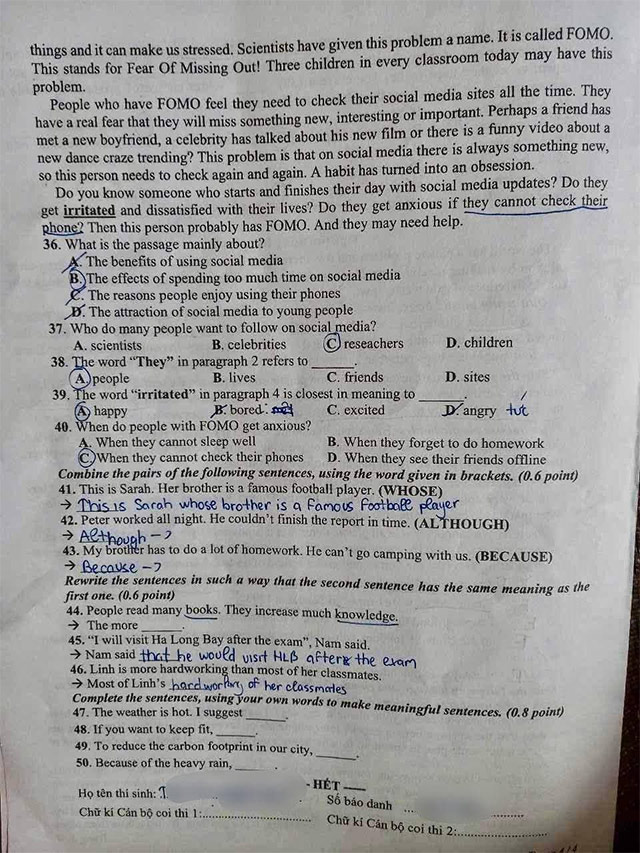 things and it can make us stressed. Scientists have given this problem a name. It is called FOMO.
This stands for Fear Of Missing Out! Three children in every classroom today may have this
problem.
People who have FOMO feel they need to check their social media sites all the time. They
have a real fear that they will miss something new, interesting or important. Perhaps a friend has
met a new boyfriend, a celebrity has talked about his new film or there is a funny video about a
new dance craze trending? This problem is that on social media there is always something new,
so this person needs to check again and again. A habit has turned into an obsession.
Do you know someone who starts and finishes their day with social media updates? Do they
get irritated and dissatisfied with their lives? Do they get anxious if they cannot check their
phone? Then this person probably has FOMO. And they may need help.
36. What is the passage mainly about?
A. The benefits of using social media
B. The effects of spending too much time on social media
C. The reasons people enjoy using their phones
D. The attraction of social media to young people
37. Who do many people want to follow on social media?
A. scientists B. celebrities C reseachers D. children
38. The word "They" in paragraph 2 refers to ______.
A people B. lives C. friends D. sites
39. The word "irritated" in paragraph 4 is closest in meaning to ______.
A happy B. bored: C. excited D. angry tức
40. When do people with FOMO get anxious?
A. When they cannot sleep well B. When they forget to do homework
C. When they cannot check their phones D. When they see their friends offline
Combine the pairs of the following sentences, using the word given in brackets. (0.6 point)
41. This is Sarah. Her brother is a famous football player. (WHOSE)
→ This is Sarah whose brother is a famous football player
42. Peter worked all night. He couldn't finish the report in time. (ALTHOUGH)
→ Although →
43. My brother has to do a lot of homework. He can't go camping with us. (BECAUSE)
→ Because →
Rewrite the sentences in such a way that the second sentence has the same meaning as the
first one. (0.6 point)
44. People read many books. They increase much knowledge.
→ The more ______.
45. "I will visit Ha Long Bay after the exam", Nam said.
→ Nam said that he would visit HLB after the exam
46. Linh is more hardworking than most of her classmates.
→ Most of Linh's hardworking of her classmates
Complete the sentences, using your own words to make meaningful sentences. (0.8 point)
47. The weather is hot. I suggest ______.
48. If you want to keep fit, ______.
49. To reduce the carbon footprint in our city, ______.
50. Because of the heavy rain, ______.
- HẾT ___
Họ tên thí sinh: Số báo danh ...
Chữ kí Cán bộ coi thi 1:.............................. Chữ kí Cán bộ coi thi 2:..............................